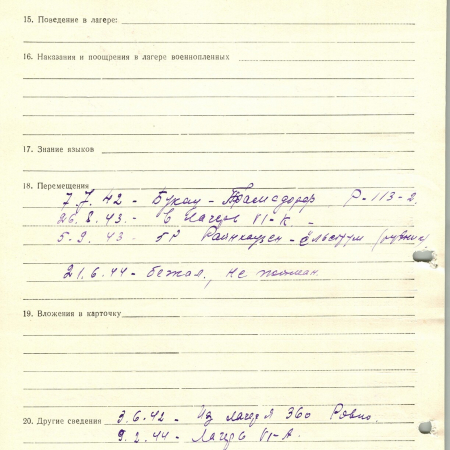 15. Поведение в лагере:
16. Наказания и поощрения в лагере военнопленных
17. Знание языков
18. Перемещения
7.7.42 - Р-113-2
26.8.43. - в лагерь VI-К. -
5.9.43 - Райнхаузен -
21.6.44 - бежал, не пойман.
19. Вложения в карточку
20. Другие сведения 3.6.42 - Из лагеря 360 Ровно.
9.2.44 - Лагерь VI-А.